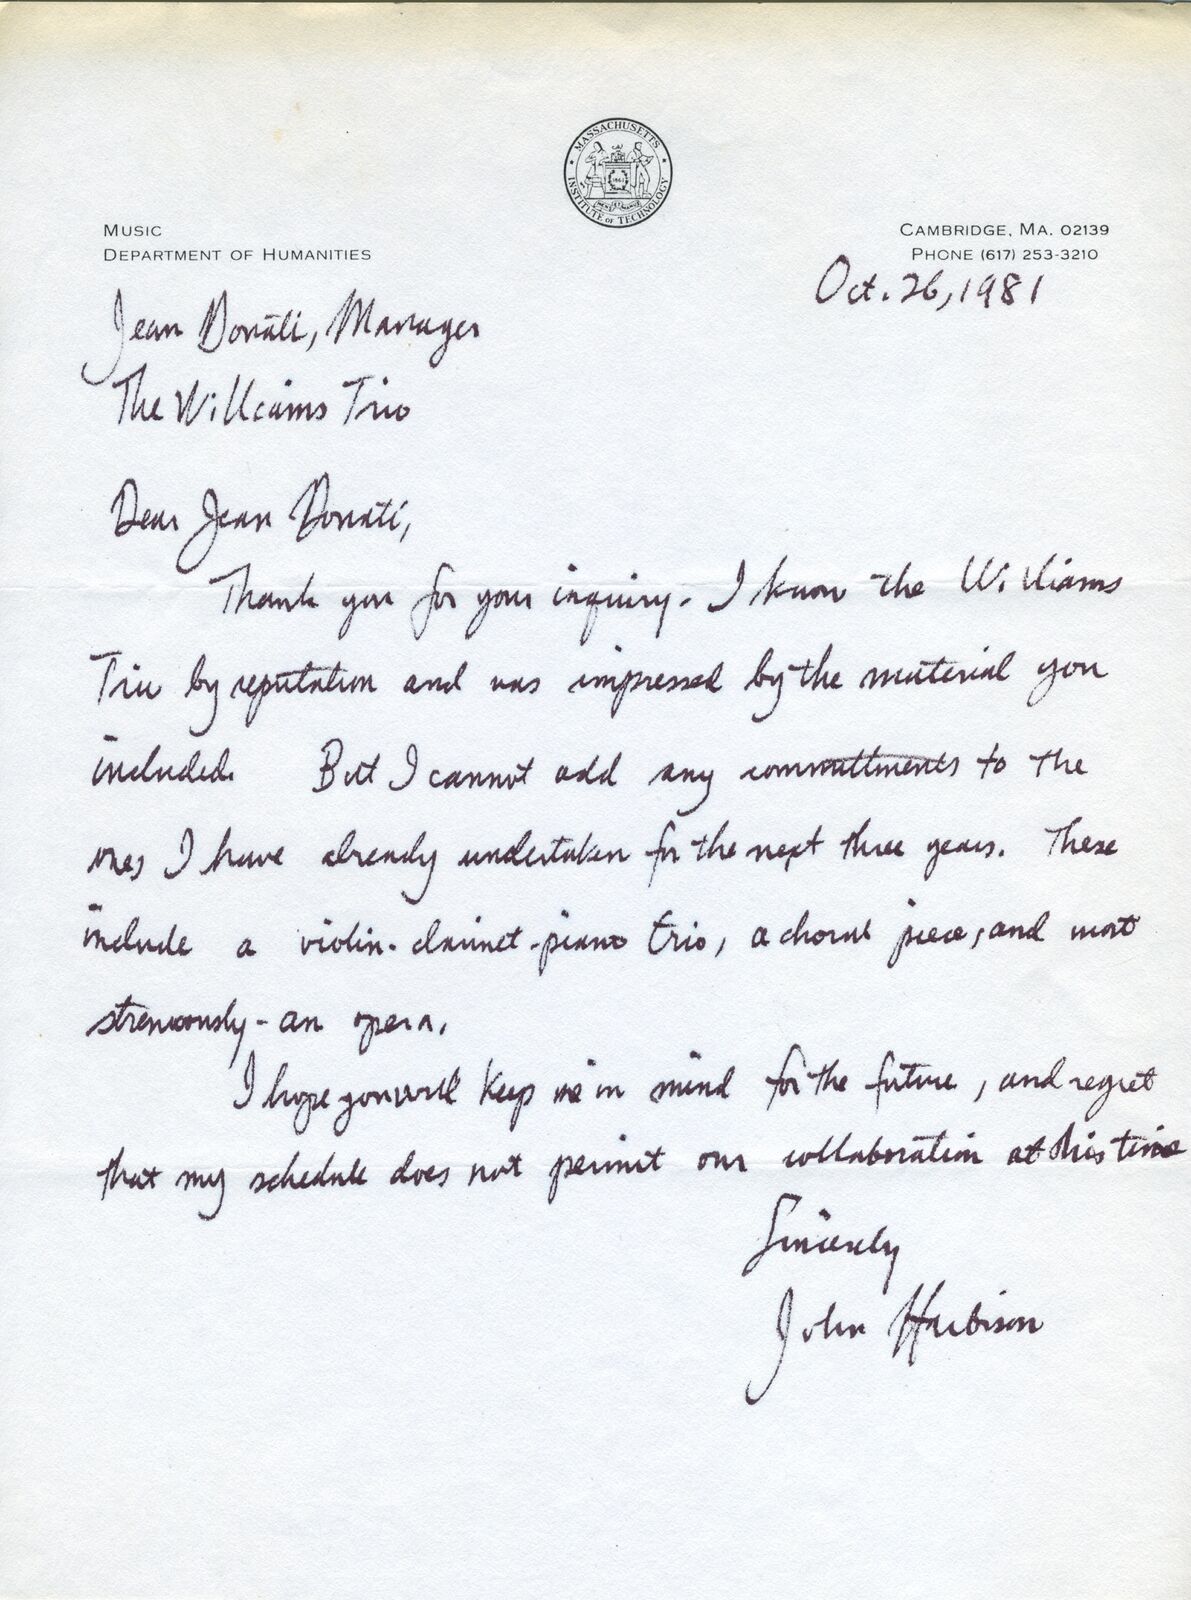 MASSACHUSETTS INSTITUTE OF TECHNOLOGY
MUSIC
DEPARTMENT OF HUMANITIES
CAMBRIDGE, MA. 02139
PHONE (617) 253-3210
Oct. 26, 1981
Jean Donati, Manager
The Williams Trio
Dear Jean Donati,
Thank you for your inquiry. I know the Williams
Trio by reputation and was impressed by the material you
included. But I cannot add any committments to the
ones I have already undertaken for the next three years. These
include a violin-clarinet-piano trio, a choral piece, and most
strenuously - an opera.
I hope you will keep me in mind for the future, and regret
that my schedule does not permit our collaboration at this time
Sincerely
John Harbison